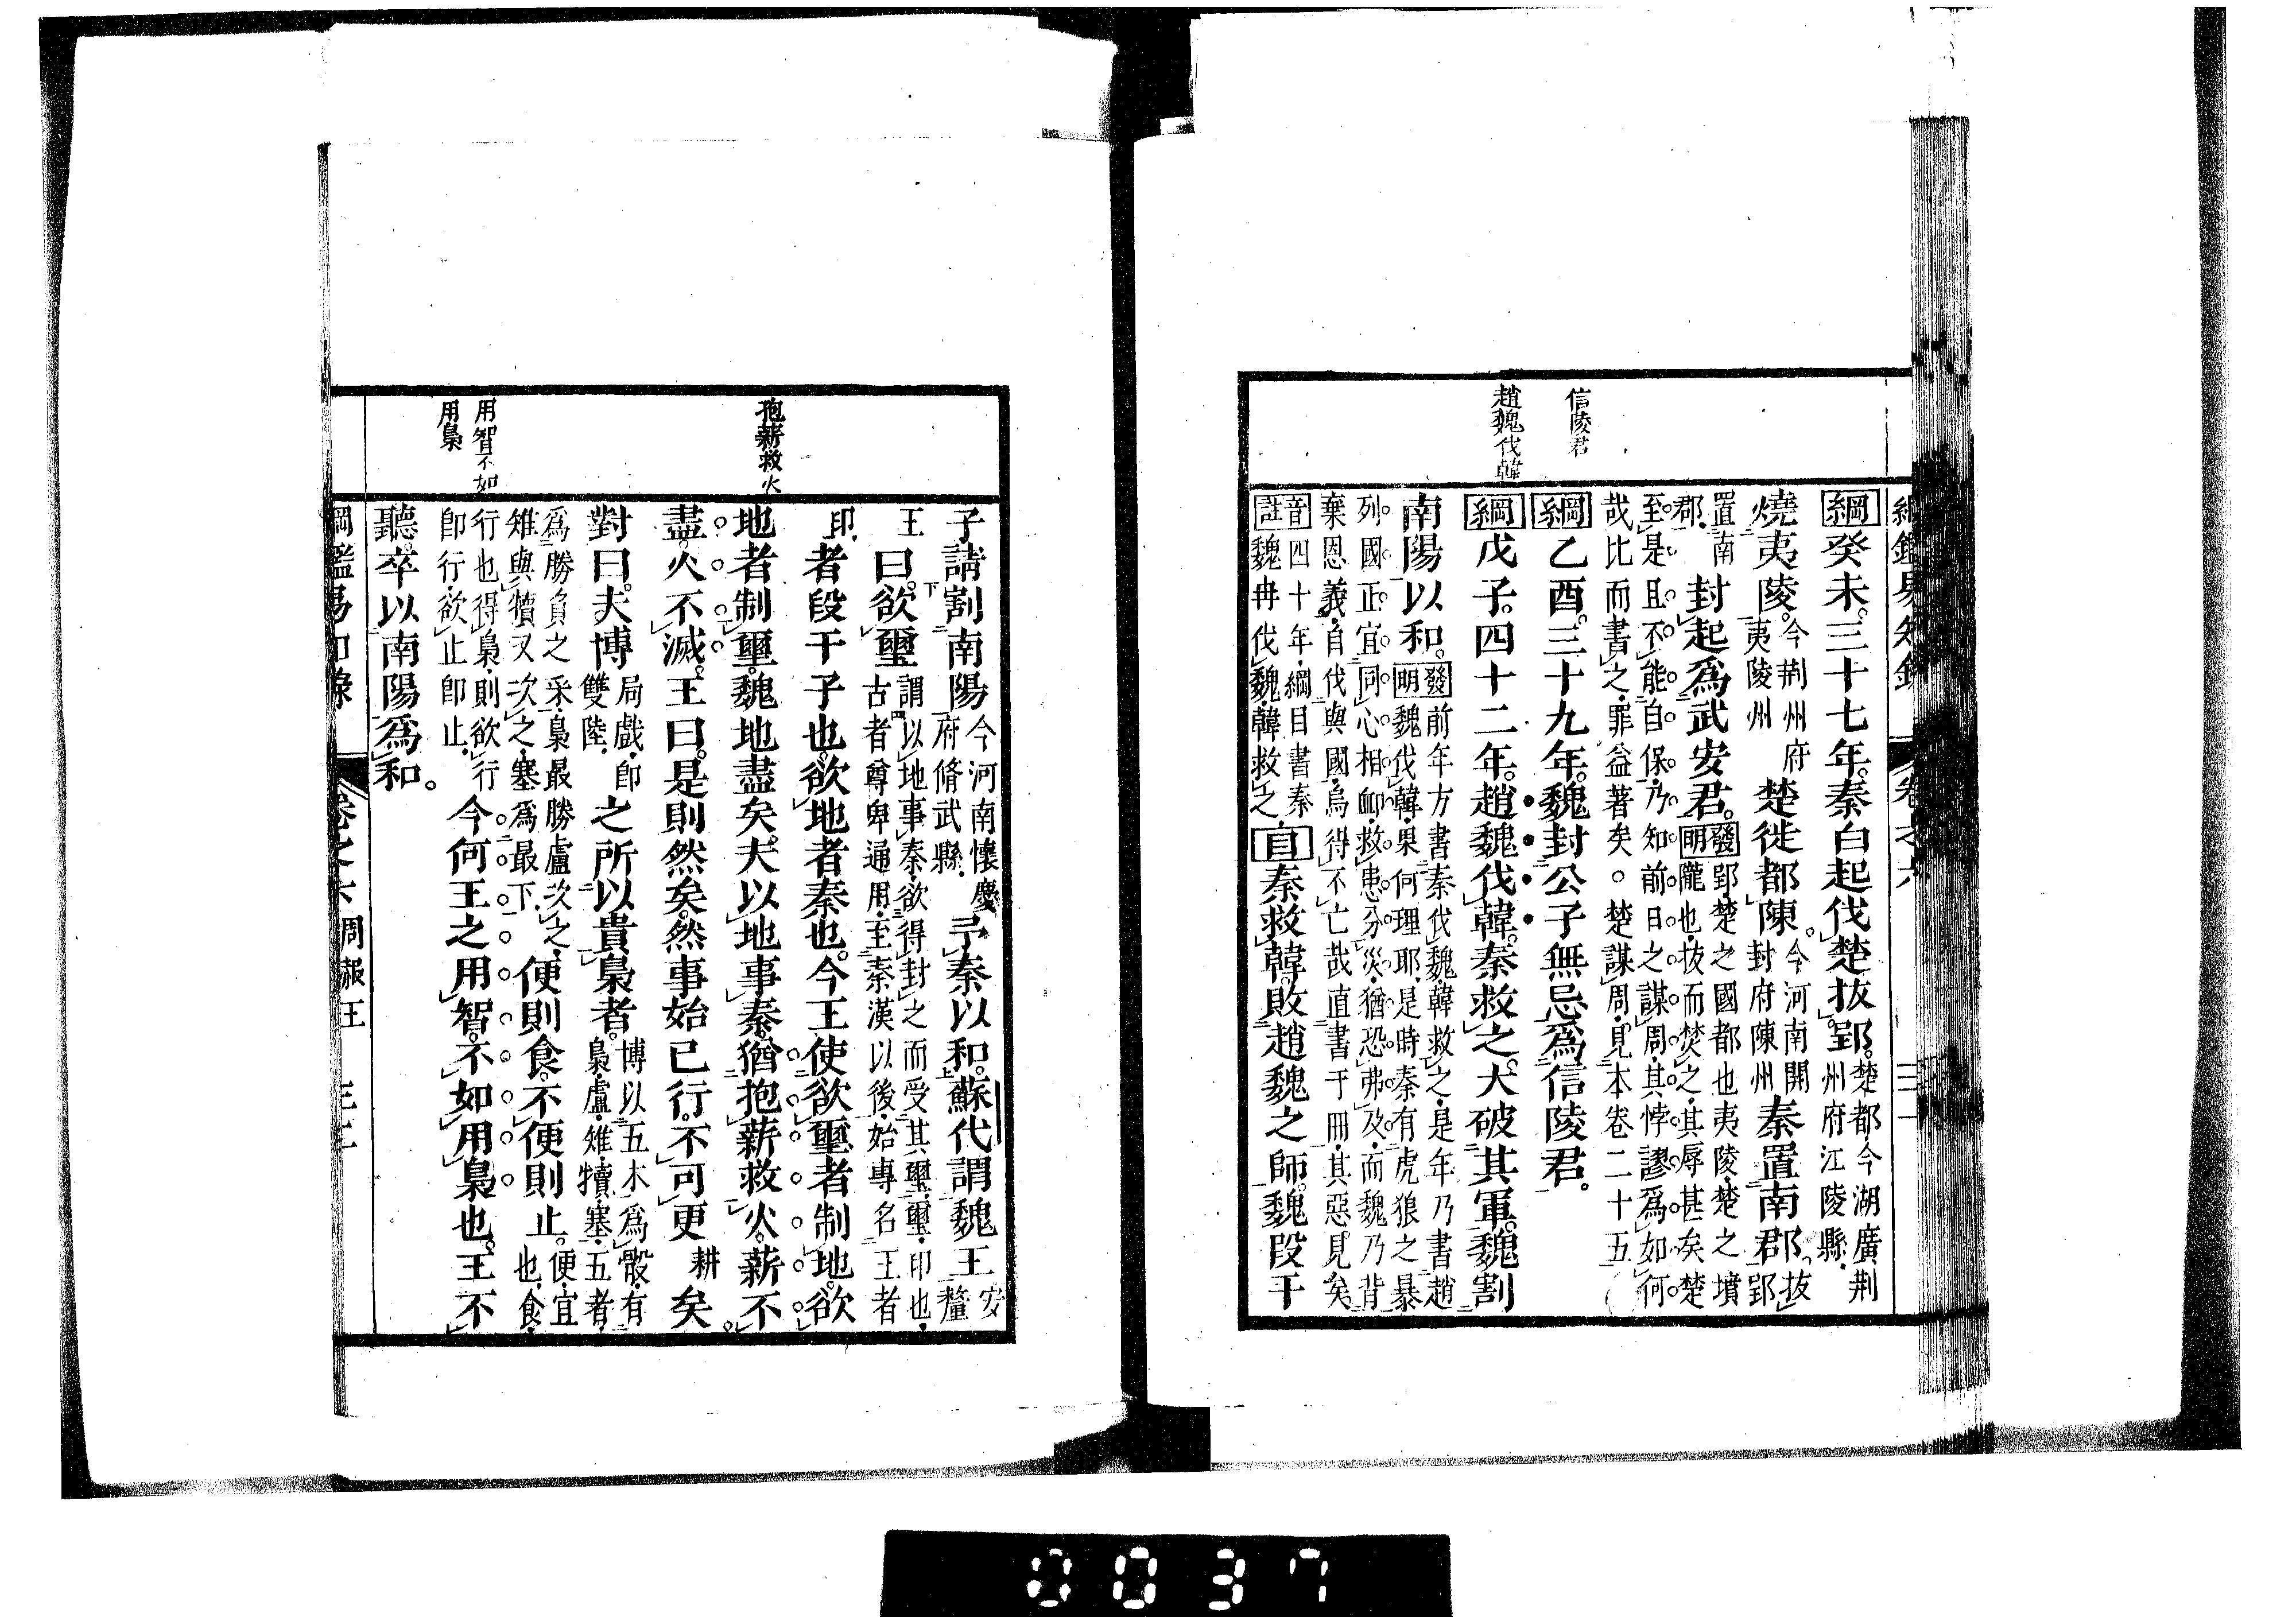 信陵君
趙魏伐韓
綱癸未。三十七年。秦白起伐楚拔郢。楚都今湖廣荆州府江陵縣
燒夷陵。今荆州府夷陵州楚徙都陳。今河南開封府陳州秦置南郡。拔郢
置南郡封起爲武安君。發明郢楚之國都也夷陵楚之墳隴也拔而焚之其辱甚矣楚
至是且不能自保乃知前日之謀周其悖謬爲如何
哉比而書之罪益著矣。楚謀周見本卷二十五
綱乙酉。三十九年。魏封公子無忌爲信陵君。
綱戊子。四十二年。趙魏伐韓。秦救之。大破其軍。魏割
南陽以和。發明前年方書秦伐魏韓救之是年乃書趙魏伐韓果何理耶是時秦有虎狼之暴
列國正宜同心相卹救患分災猶恐弗及而魏乃背
棄恩義自伐與國烏得不亡哉直書于冊其惡見矣
音註四十年綱目書秦魏冉伐魏韓救之目秦救韓。敗趙魏之師。魏段干
孢薪救火
用智不如用梟
子請割南陽今河南懷慶府脩武縣予秦以和。蘇代謂魏王安釐
王曰。欲璽謂以地事秦欲得封之而受其璽璽印也古者尊卑通用至秦漢以後始專名王者
印者段干子也。欲地者秦也。今王使欲璽者制地。欲
地者制璽。魏地盡矣。夫以地事秦。猶抱薪救火。薪不
盡。火不滅。王曰。是則然矣。然事始已行。不可更耕矣。
對曰。夫博局戲即雙陸之所以貴梟者。博以五木爲骰有梟盧雉犢塞五者
爲勝負之采梟最勝盧次之便則食。不便則止。便宜也食
雉與犢又次之塞爲最下
行也得梟則欲行即行欲止即止今何王之用智。不如用梟也。王不
聽。卒以南陽爲和。
綱鑑易知錄 卷之六 周赧王